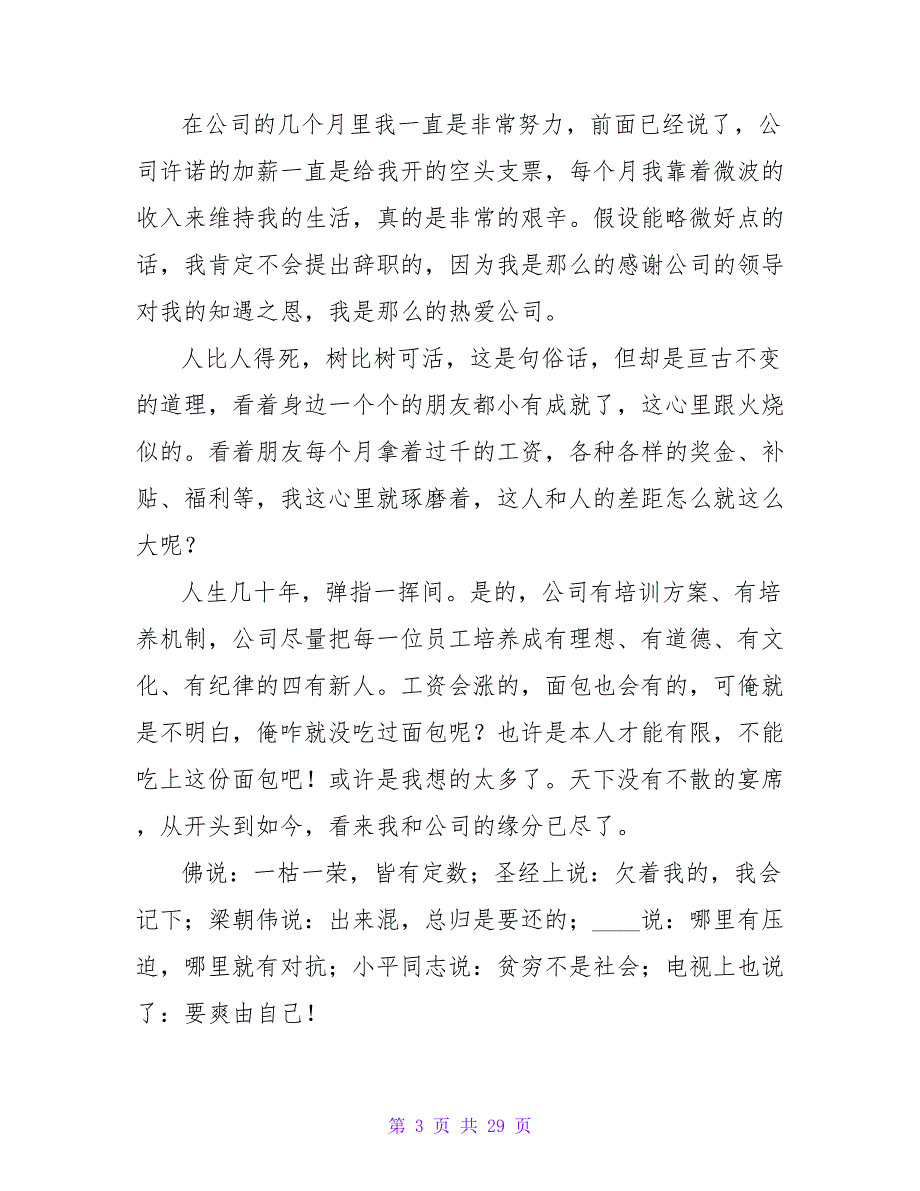 在公司的几个月里我一直是非常努力，前面已经说了，公
司许诺的加薪一直是给我开的空头支票，每个月我靠着微波的
收入来维持我的生活，真的是非常的艰辛。假设能略微好点的
话，我肯定不会提出辞职的，因为我是那么的感谢公司的领导
对我的知遇之恩，我是那么的热爱公司。
人比人得死，树比树可活，这是句俗话，但却是亘古不变
的道理，看着身边一个个的朋友都小有成就了，这心里跟火烧
似的。看着朋友每个月拿着过千的工资，各种各样的奖金、补
贴、福利等，我这心里就琢磨着，这人和人的差距怎么就这么
大呢？
人生几十年，弹指一挥间。是的，公司有培训方案、有培
养机制，公司尽量把每一位员工培养成有理想、有道德、有文
化、有纪律的四有新人。工资会涨的，面包也会有的，可俺就
是不明白，俺咋就没吃过面包呢？也许是本人才能有限，不能
吃上这份面包吧！或许是我想的太多了。天下没有不散的宴席
，从开头到如今，看来我和公司的缘分已尽了。
佛说：一枯一荣，皆有定数；圣经上说：欠着我的，我会
记下；梁朝伟说：出来混，总归是要还的；____说：哪里有压
迫，哪里就有对抗；小平同志说：贫穷不是社会；电视上也说
了：要爽由自己！
第 3 页 共 29 页